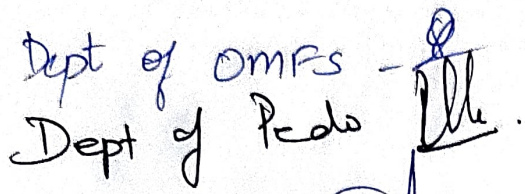 Dept of OMFS -
Dept of Pedo